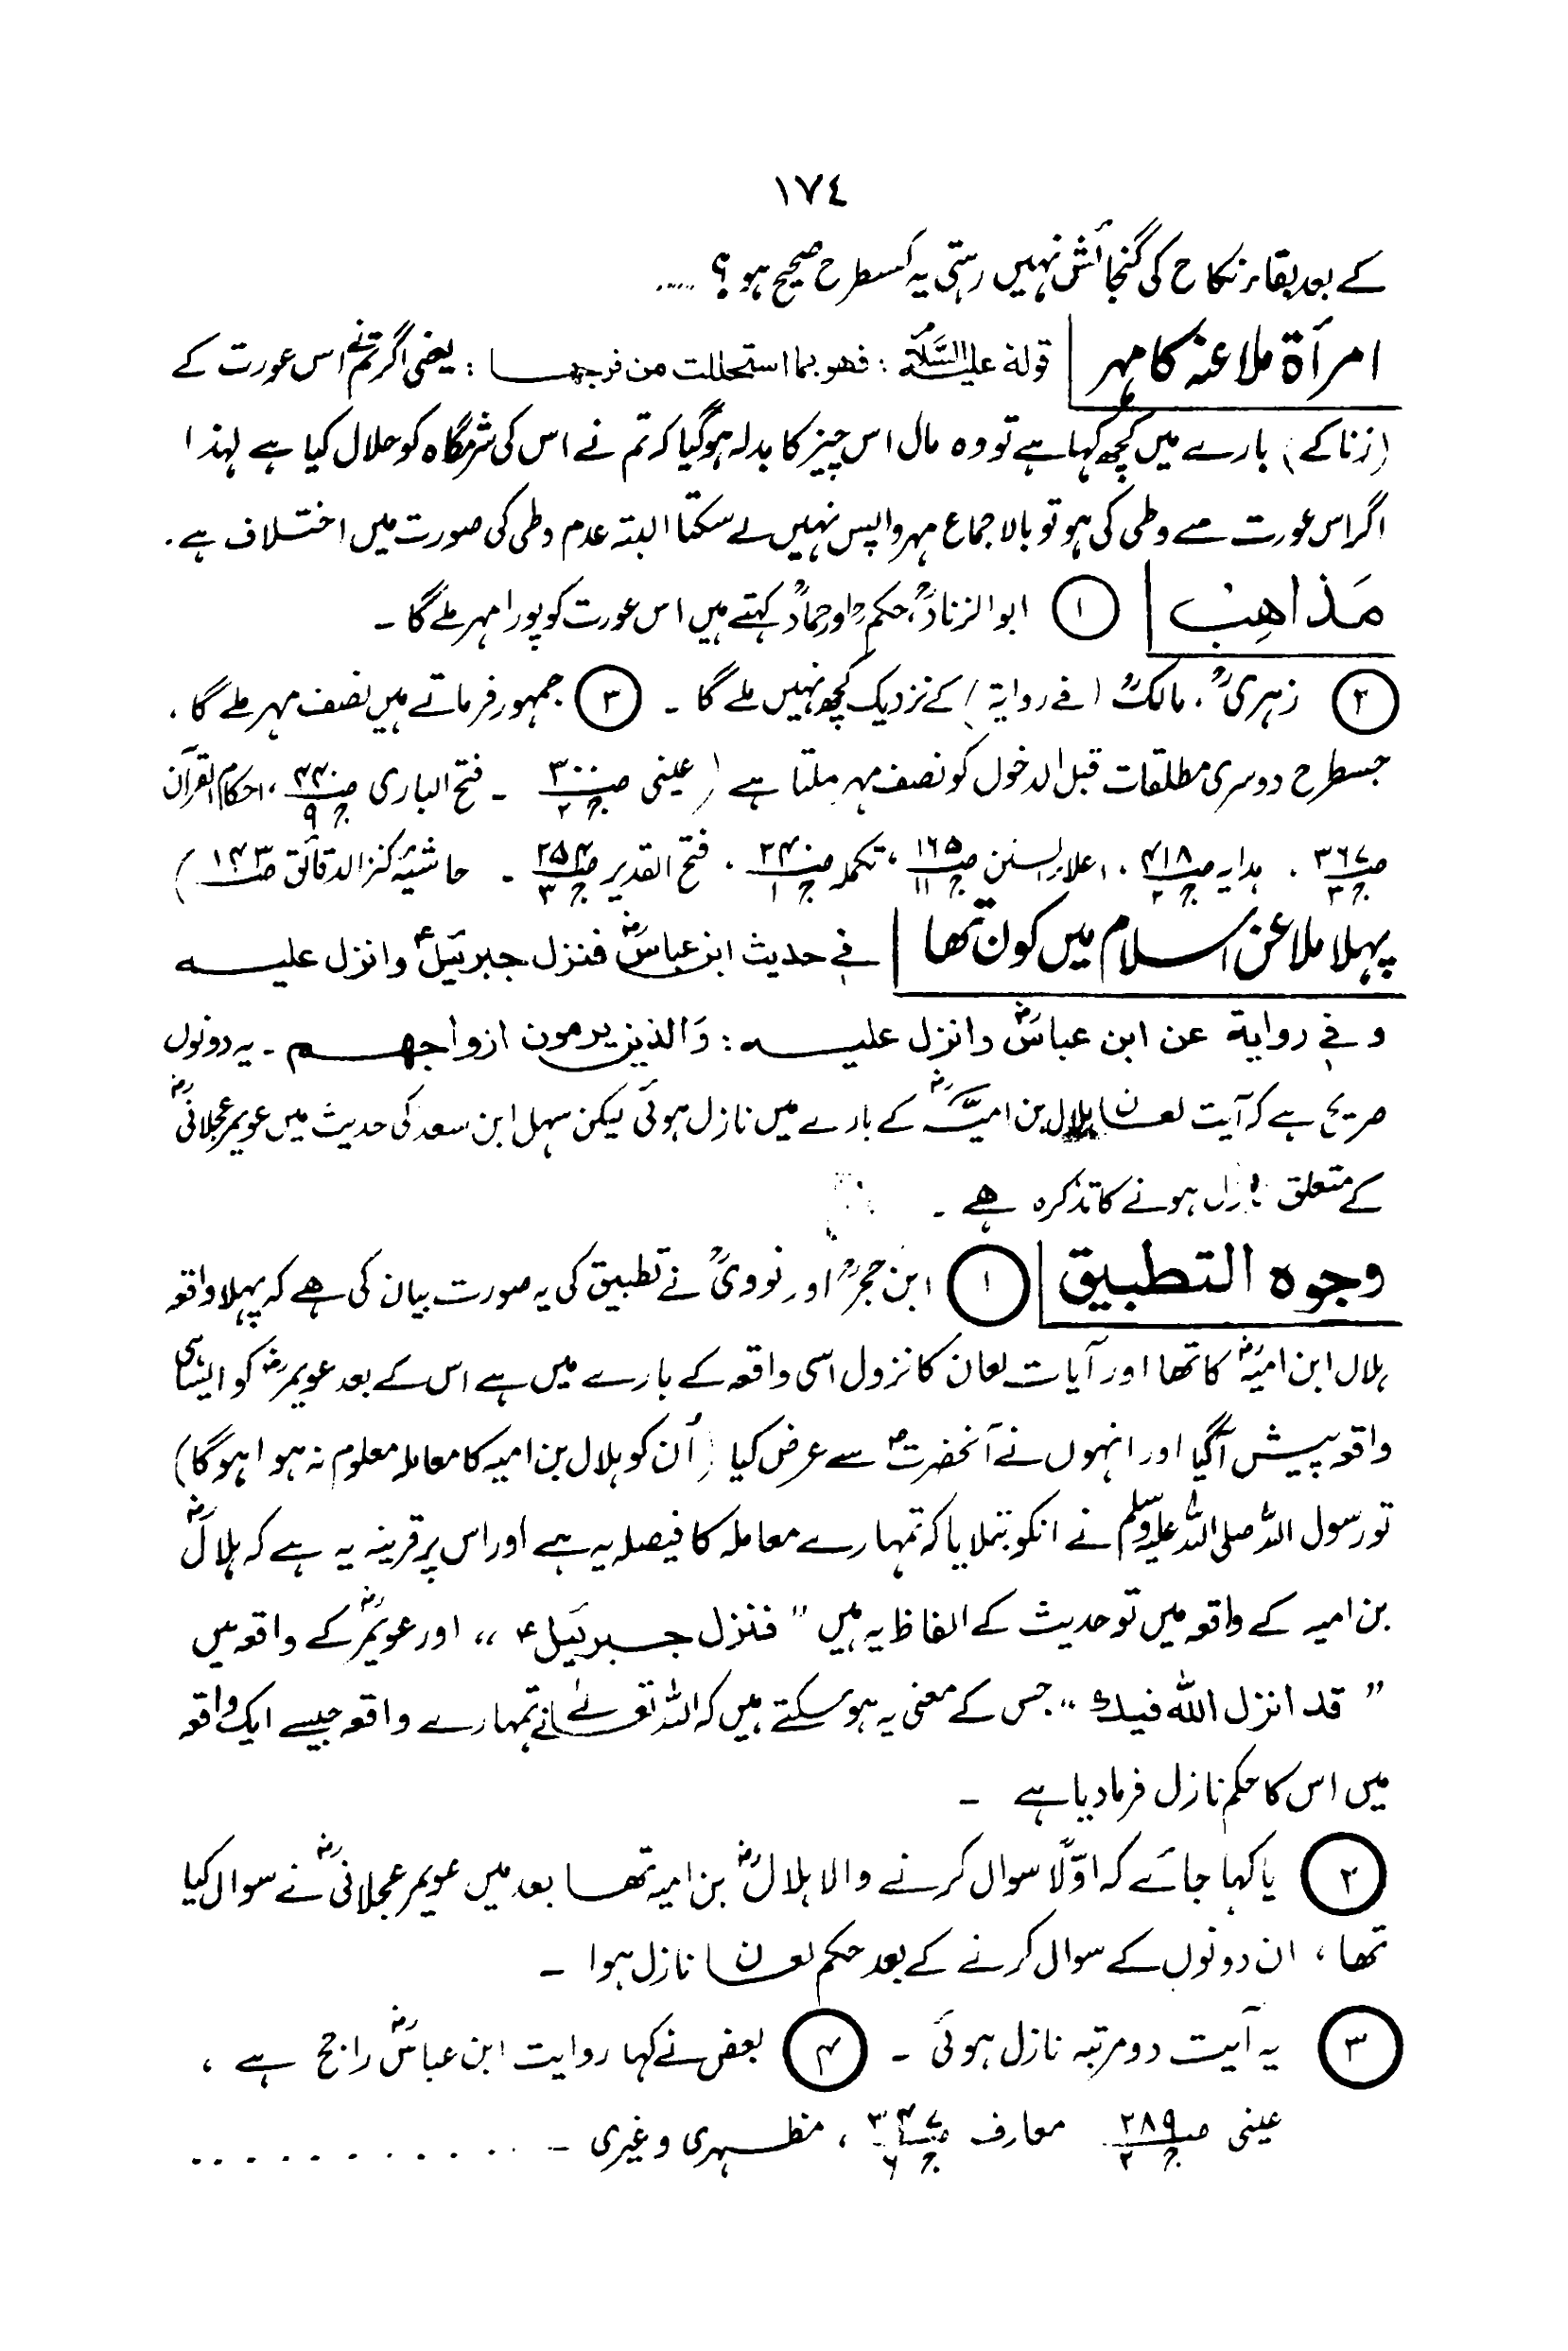 ١٧٤
کے بعد بقاء نکاح کی گنجائش نہیں رہتی یہ کسطرح صحیح ہو ؟ .....
امرأة ملاعنہ کا مہر | قولہ علیہ السَّلام : فهو بما استحللت من فرجها : یعنی اگر تم نے اس عورت کے
(زنا کے) بارے میں کچھ کہا ہے تو وہ مال اس چیز کا بدلہ ہوگیا کہ تم نے اس کی شرمگاہ کو حلال کیا ہے لہذا
اگر اس عورت سے وطی کی ہو تو بالاجماع مہر واپس نہیں لے سکتا البتہ عدم وطی کی صورت میں اختلاف ہے ۔
مَذاهِب | ① ابوالزنادؒ، حکمؒ اور حمادؒ کہتے ہیں اس عورت کو پورا مہر ملے گا ۔
② زہریؒ ، مالکؒ (فے روایۃ) کے نزدیک کچھ نہیں ملے گا ۔ ③ جمہور فرماتے ہیں نصف مہر ملے گا ،
جسطرح دوسری مطلقات قبل الدخول کو نصف مہر ملتا ہے (عینی ص۳۰۰ ج۲ ۔ فتح الباری ص۴۴۰ ج۹ ، احکام القرآن
ص۳۶۷ ج۳ ، ہدایہ ص۴۱۸ ج۲ ، اعلاء السنن ص۱۶۵ ج۱۱ ، تکملہ ص۲۴۰ ج۱ ، فتح القدیر ص۲۵۴ ج۳ ۔ حاشیۂ کنز الدقائق ص۱۴۳)
پہلا ملاعن اسلام میں کون تھا | فے حدیث ابن عباسؓ فنزل جبرئیلؑ وانزل علیہ
وفی روایة عن ابن عباسؓ وانزل علیہ : وَالذین یرمون ازواجهم ۔ یہ دونوں
صریح ہے کہ آیت لعان ہلال بن امیہؓ کے بارے میں نازل ہوئی لیکن سہل ابن سعد کی حدیث میں عویمر عجلانیؓ
کے متعلق نازل ہونے کا تذکرہ ہے ۔
وجوہ التطبیق | ① ابن حجرؒ اور نوویؒ نے تطبیق کی یہ صورت بیان کی ہے کہ پہلا واقعہ
ہلال ابن امیہؓ کا تھا اور آیات لعان کا نزول اسی واقعہ کے بارے میں ہے اس کے بعد عویمرؓ کو ایسا ہی
واقعہ پیش آگیا اور انہوں نے آنحضرتؐ سے عرض کیا (اُن کو ہلال بن امیہ کا معاملہ معلوم نہ ہوا ہوگا)
تو رسول اللہ صلی اللہ علیہ وسلم نے انکو بتلایا کہ تمہارے معاملہ کا فیصلہ یہ ہے اور اس پر قرینہ یہ ہے کہ ہلالؓ
بن امیہ کے واقعہ میں تو حدیث کے الفاظ یہ ہیں ”فنزل جبرئیلؑ“ اور عویمرؓ کے واقعہ میں
”قد انزل اللہ فیك“ جس کے معنی یہ ہوسکتے ہیں کہ اللہ تعالیٰ نے تمہارے واقعہ جیسے ایک واقعہ
میں اس کا حکم نازل فرمادیا ہے ۔
② یا کہا جائے کہ اوّلاً سوال کرنے والا ہلالؓ بن امیہ تھا بعد میں عویمر عجلانیؓ نے سوال کیا
تھا ، ان دونوں کے سوال کرنے کے بعد حکم لعان نازل ہوا ۔
③ یہ آیت دو مرتبہ نازل ہوئی ۔ ④ بعض نے کہا روایت ابن عباسؓ راجح ہے ،
عینی ص۲۸۹ ج۲ معارف ص۳۴۷ ج۶ ، مظہری وغیری ۔ . . . . . . . . . . .